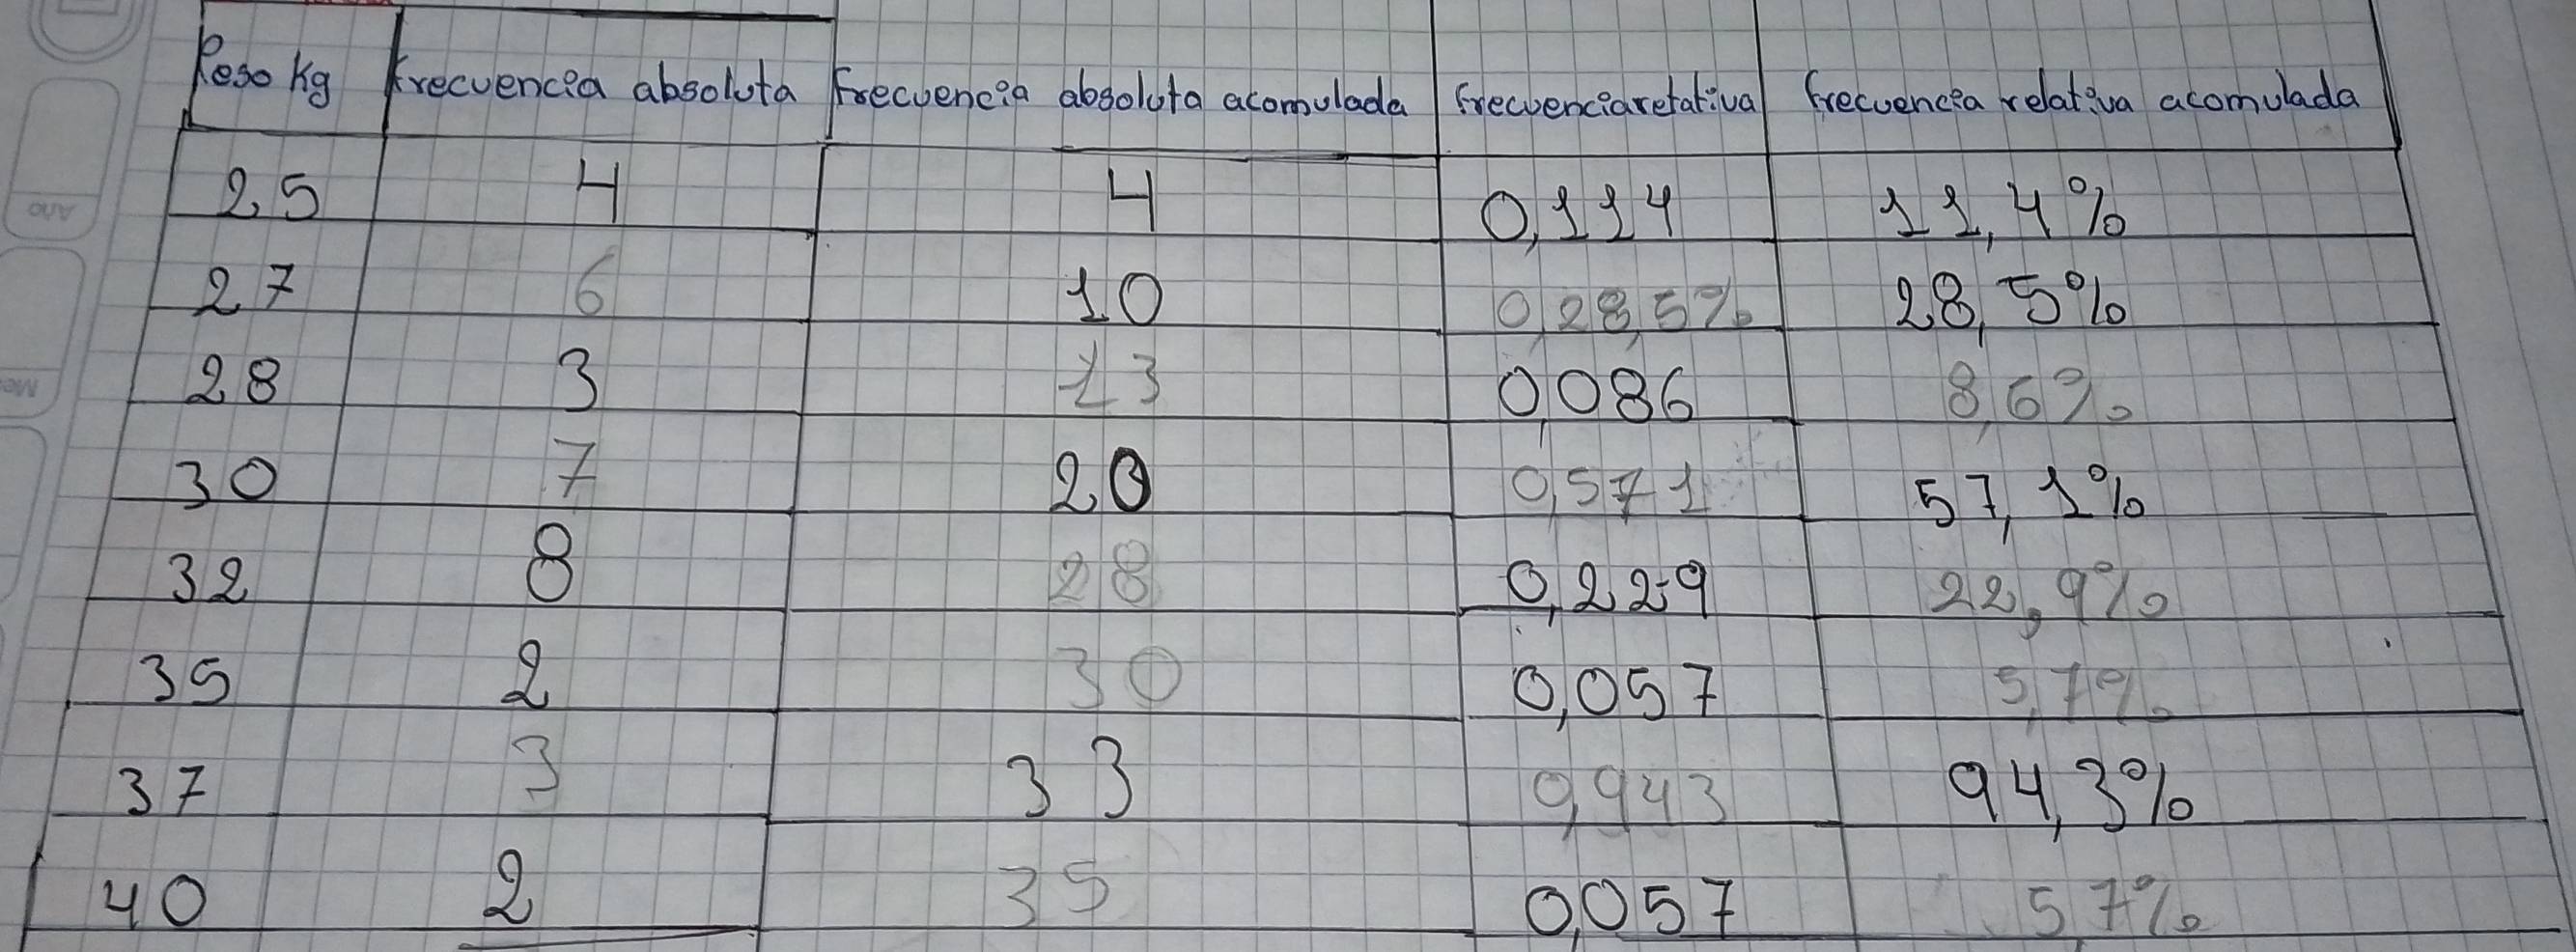 Peso Kg frecuencia absoluta frecuencia absoluta acomulada frecuencia retativa frecuencia relativa acomulada
25 4 4 0,114 11,4%
27 6 10 0,28,5% 28,5%
28 3 13 0,086 8,6%
30 7 20 0,571 57,1%
32 8 28 0,229 22,9%
35 2 30 0,057 5,7%
37 3 33 0,943 94,3%
40 2 35 0,057 5,7%
Año